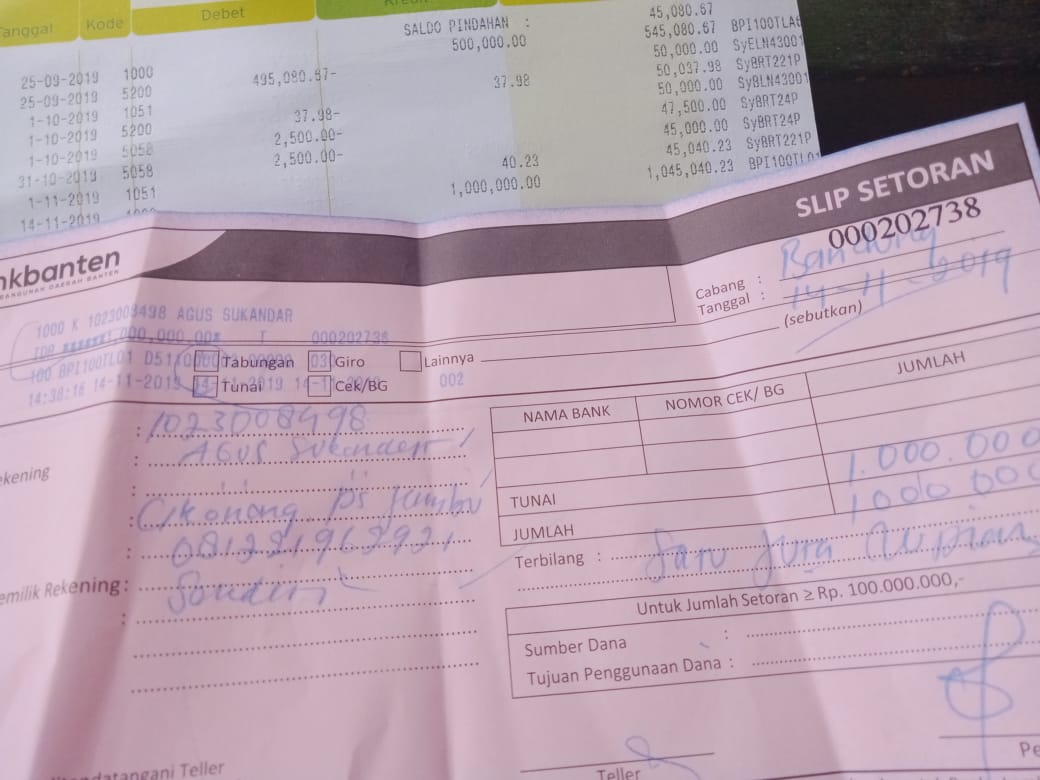 Tanggal Kode Debet Kredit
SALDO PINDAHAN : 45,080.67
25-09-2019 1000 500,000.00 545,080.67 BPI100TLA
25-09-2019 5200 495,080.67- 50,000.00 SyELN43001
1-10-2019 1051 37.98 50,037.98 SyBRT221P
1-10-2019 5200 37.98- 50,000.00 SyBLN43001
1-10-2019 5058 2,500.00- 47,500.00 SyBRT24P
31-10-2019 5058 2,500.00- 45,000.00 SyBRT24P
1-11-2019 1051 40.23 45,040.23 SyBRT221P
14-11-2019 1000 1,000,000.00 1,045,040.23 BPI100TL01
SLIP SETORAN
000202738
nkbanten
BANGUNAN DAERAH BANTEN
Cabang : Bandung
Tanggal : 14-11-2019
(sebutkan)
1000 K 1023008498 AGUS SUKANDAR
000,000.00 T 000202738
100 BPI100TL01
14:38:16 14-11-2019 14-11-2019 14-11-
002
Tabungan Giro Lainnya
Tunai Cek/BG
: 1023008498
ekening : Agus Sukandar
:
: Cikonong ps Jambu
:
emilik Rekening : Sendiri
:
NAMA BANK NOMOR CEK/ BG JUMLAH
TUNAI 1.000.000
JUMLAH 1000 000
Terbilang : Satu Juta Rupiah
Untuk Jumlah Setoran ≥ Rp. 100.000.000,-
Sumber Dana :
Tujuan Penggunaan Dana :
ndatangani Teller
Teller
Pe